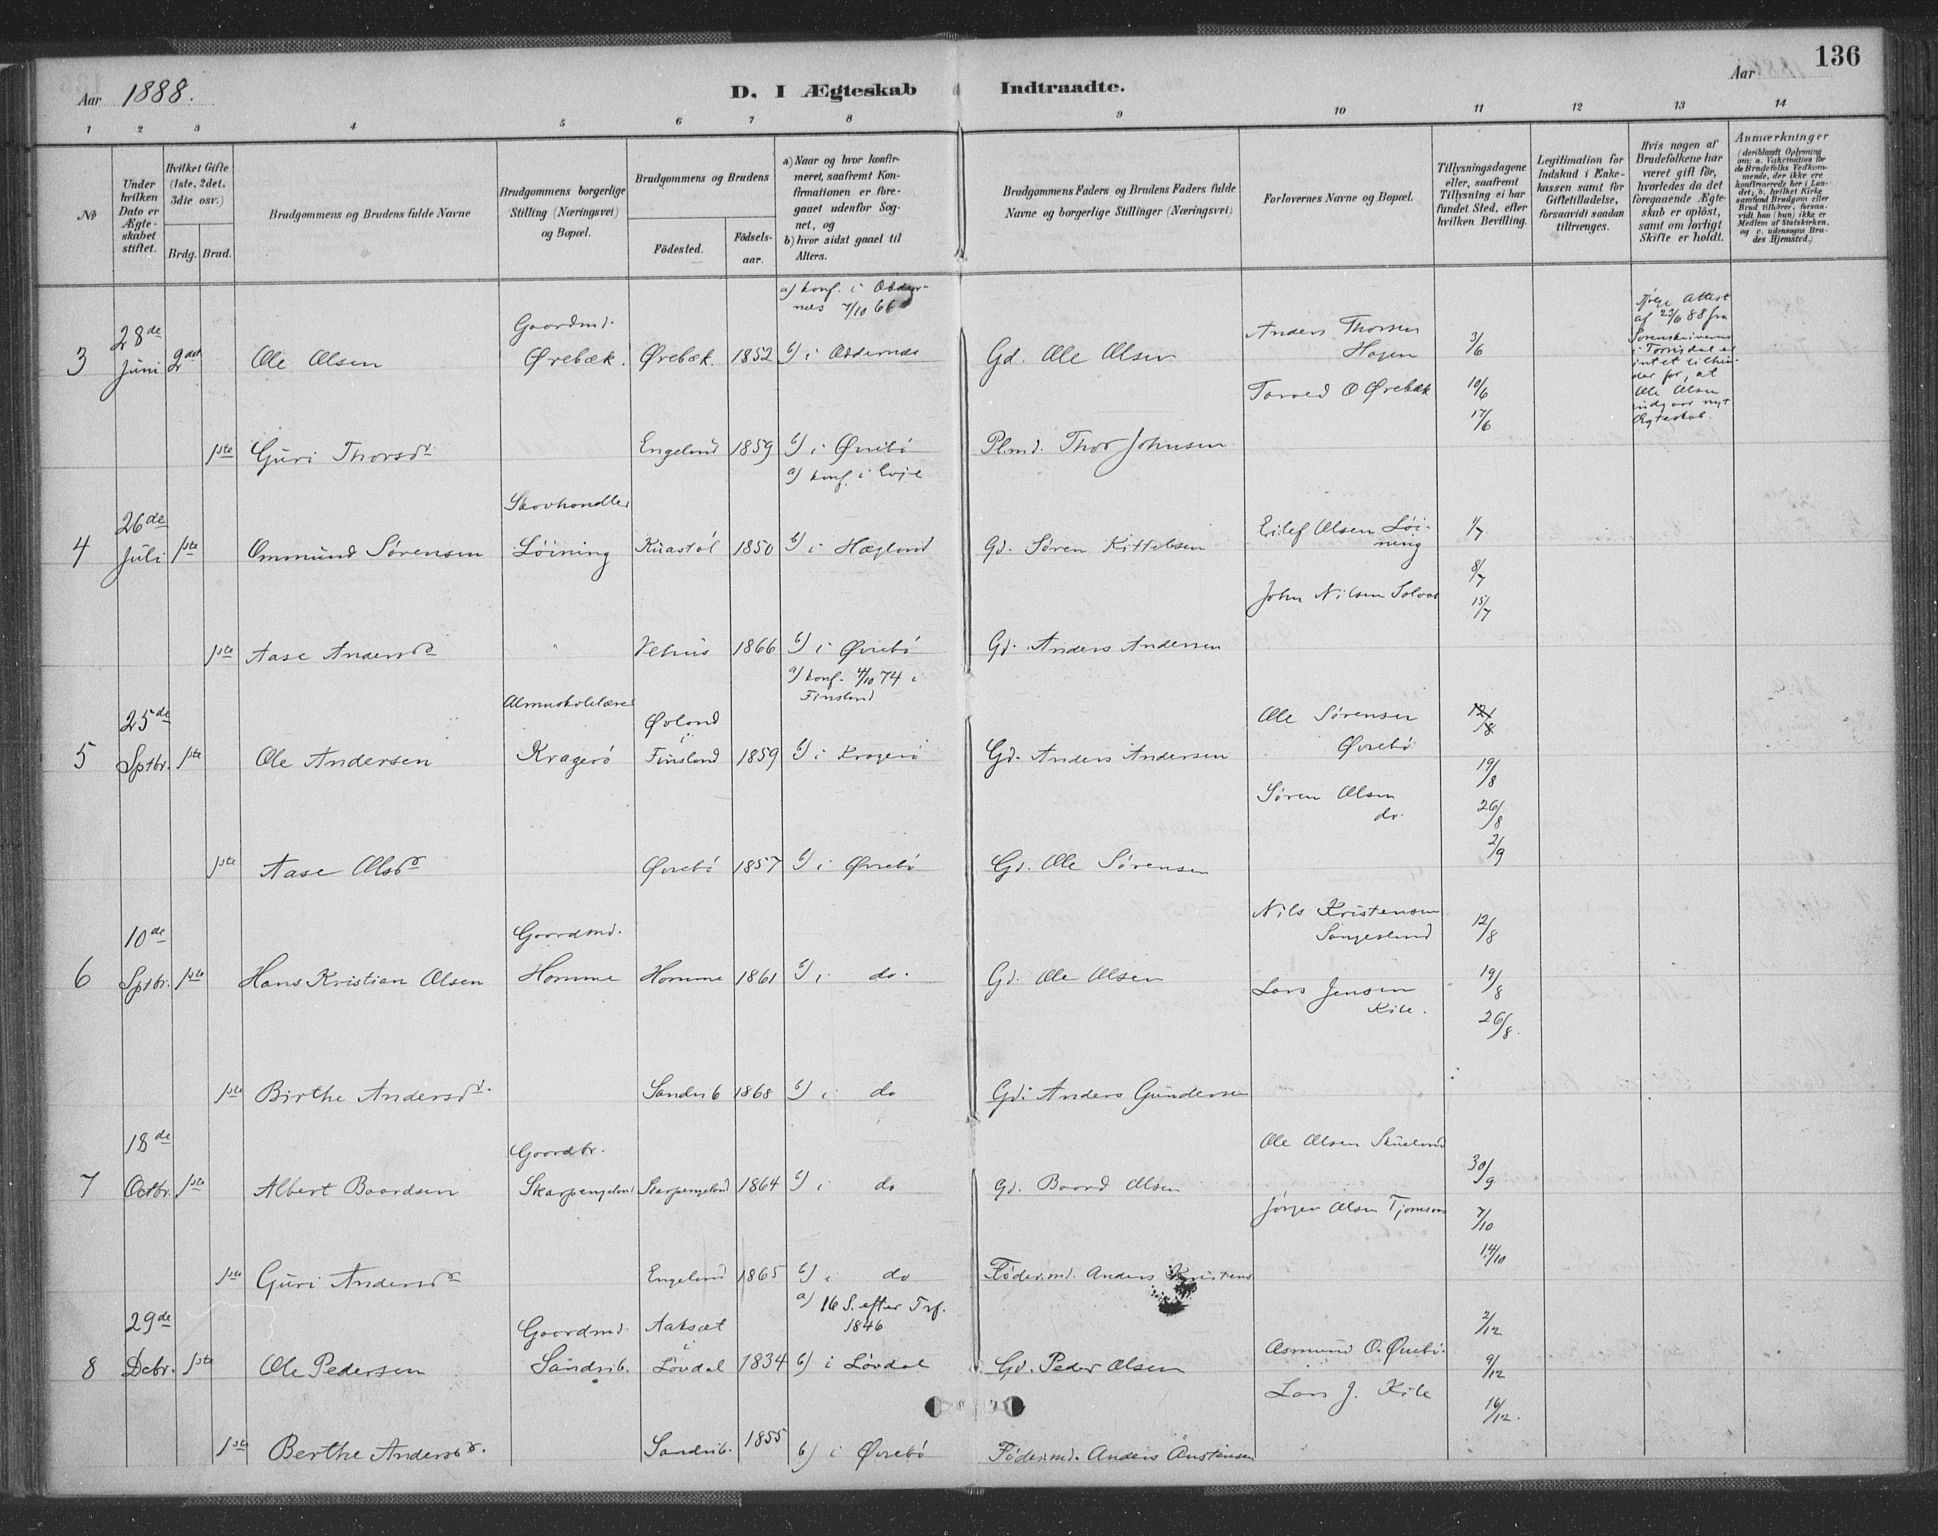 136
Aar 1888. D. I Ægteskab Indtraadte. Aar
1 2 3 4 5 6 7 8 9 10 11 12 13 14
No
Under hvilken Dato er Ægteskabet stiftet.
Hvilket Gifte (1ste, 2det, 3die osv.)
Brdg. Brud.
Brudgommens og Brudens fulde Navne
Brudgommens borgerlige Stilling (Næringsvei) og Bopæl.
Brudgommens og Brudens
Fødested. Fødselsaar.
a) Naar og hvor konfirmeret, saafremt Konfirmationen er foregaaet udenfor Sognet, og
b) hvor sidst gaaet til Alters.
Brudgommens Faders og Brudens Faders fulde Navne og borgerlige Stillinger (Næringsvei)
Forlovernes Navne og Bopæl.
Tillysningsdagene eller, saafremt Tillysning ei har fundet Sted, efter hvilken Bevilling.
Legitimation for Indskud i Enkekassen samt for Giftetilladelse, forsaavidt saadan tiltrænges.
Hvis nogen af Brudefolkene har været gift før, hvorledes da det foregaaende Ægteskab er opløst, samt om lovligt Skifte er holdt.
Anmærkninger (deriblandt Oplysning om: a. Vakcination for de Brudefolks Vedkommende, der ikke ere konfirmerede her i Landet; b. hvilket Kirke samfund Brudgom eller Brud tilhører, forsaavidt han (hun) ikke er Medlem af Statskirken, og c. udensogns Brudes Hjemsted.)
3 28de Juni 2det Ole Olsen Gaardmd. Ørebæk. Ørebæk. 1852 a) konf. i Oddernes 7/10 66 b) i Oddernes Gd. Ole Olsen Anders Thorsen Hagen 3/6
Torved O Ørebæk 10/6 17/6
Ifølge Attest af 23/6 88 fra Sorenskriveren i Torrisdal er intet til hinder for, at Ole Olsen indgaar nyt Ægteskab.
1ste Guri Thorsdr Engeland 1859 b) i Øvrebø Plmd. Thor Johnsen
4 26de Juli 1ste Ommund Sørensen Skovhandler Løining Kuastøl 1850 a) konf. i Evje b) i Hægland Gd. Søren Kittelsen Eilef Olsen Løining 1/7
John Nilsen Solaas 8/7 15/7
1ste Aase Andersdr " Vehus 1866 b) i Øvrebø Gd. Anders Andersen
5 25de Sptbr. 1ste Ole Andersen Almueskolelærer Kragerø Øvland i Finsland 1859 a) konf. 4/10 74 i Finsland b) i Kragerø Gd. Anders Andersen Ole Sørensen Øvrebø 12/8
Søren Olsen do. 19/8 26/8 2/9
1ste Aase Olsdr Øvrebø 1857 b) i Øvrebø Gd. Ole Sørensen
6 10de Sptbr. 1ste Hans Kristian Olsen Gaardmd. Homme Homme 1861 b) i do. Gd. Ole Olsen Nils Kristensen Sangesland 12/8
Lars Jensen Kile. 19/8 26/8.
1ste Birthe Andersdr. Sandrib 1868 b) i do Gd. Anders Gundersen
7 18de Octbr. 1ste Albert Baardsen Gaardbr. Skarpengeland Skarpengeland 1864 b) i do Gd. Baard Olsen Ole Olsen Skueland 30/9
Jørgen Olsen Tjomsaas 7/10 14/10
1ste Guri Andersdr Engeland 1865 b) i do Fødermd. Anders Kristens
8 29de Debr. 1ste Ole Pedersen Gaardmd. Sandrib. Aaksæt i Løvdal 1834 a) 16 S. efter Trf. 1846 b) i Løvdal Gd. Peder Olsen Asmund O. Øvrebø. 2/12
Lars J. Kile 9/12 16/12.
1ste Berthe Andersdr. Sandrib. 1855 b) i Øvrebø Fødermd. Anders Aanstensen